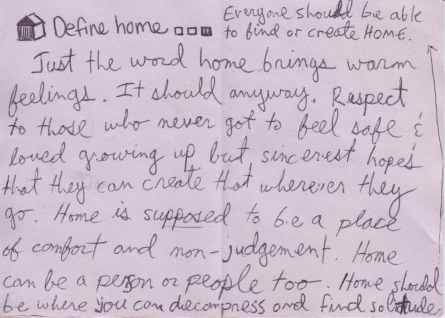 Define home
Everyone should be able
to find or create HOME.
Just the word home brings warm
feelings. It should anyway. Respect
to those who never got to feel safe &
loved growing up but sincerest hopes
that they can create that wherever they
go. Home is supposed to be a place
of comfort and non-judgement. Home
can be a person or people too. Home should
be where you can decompress and find solitude.